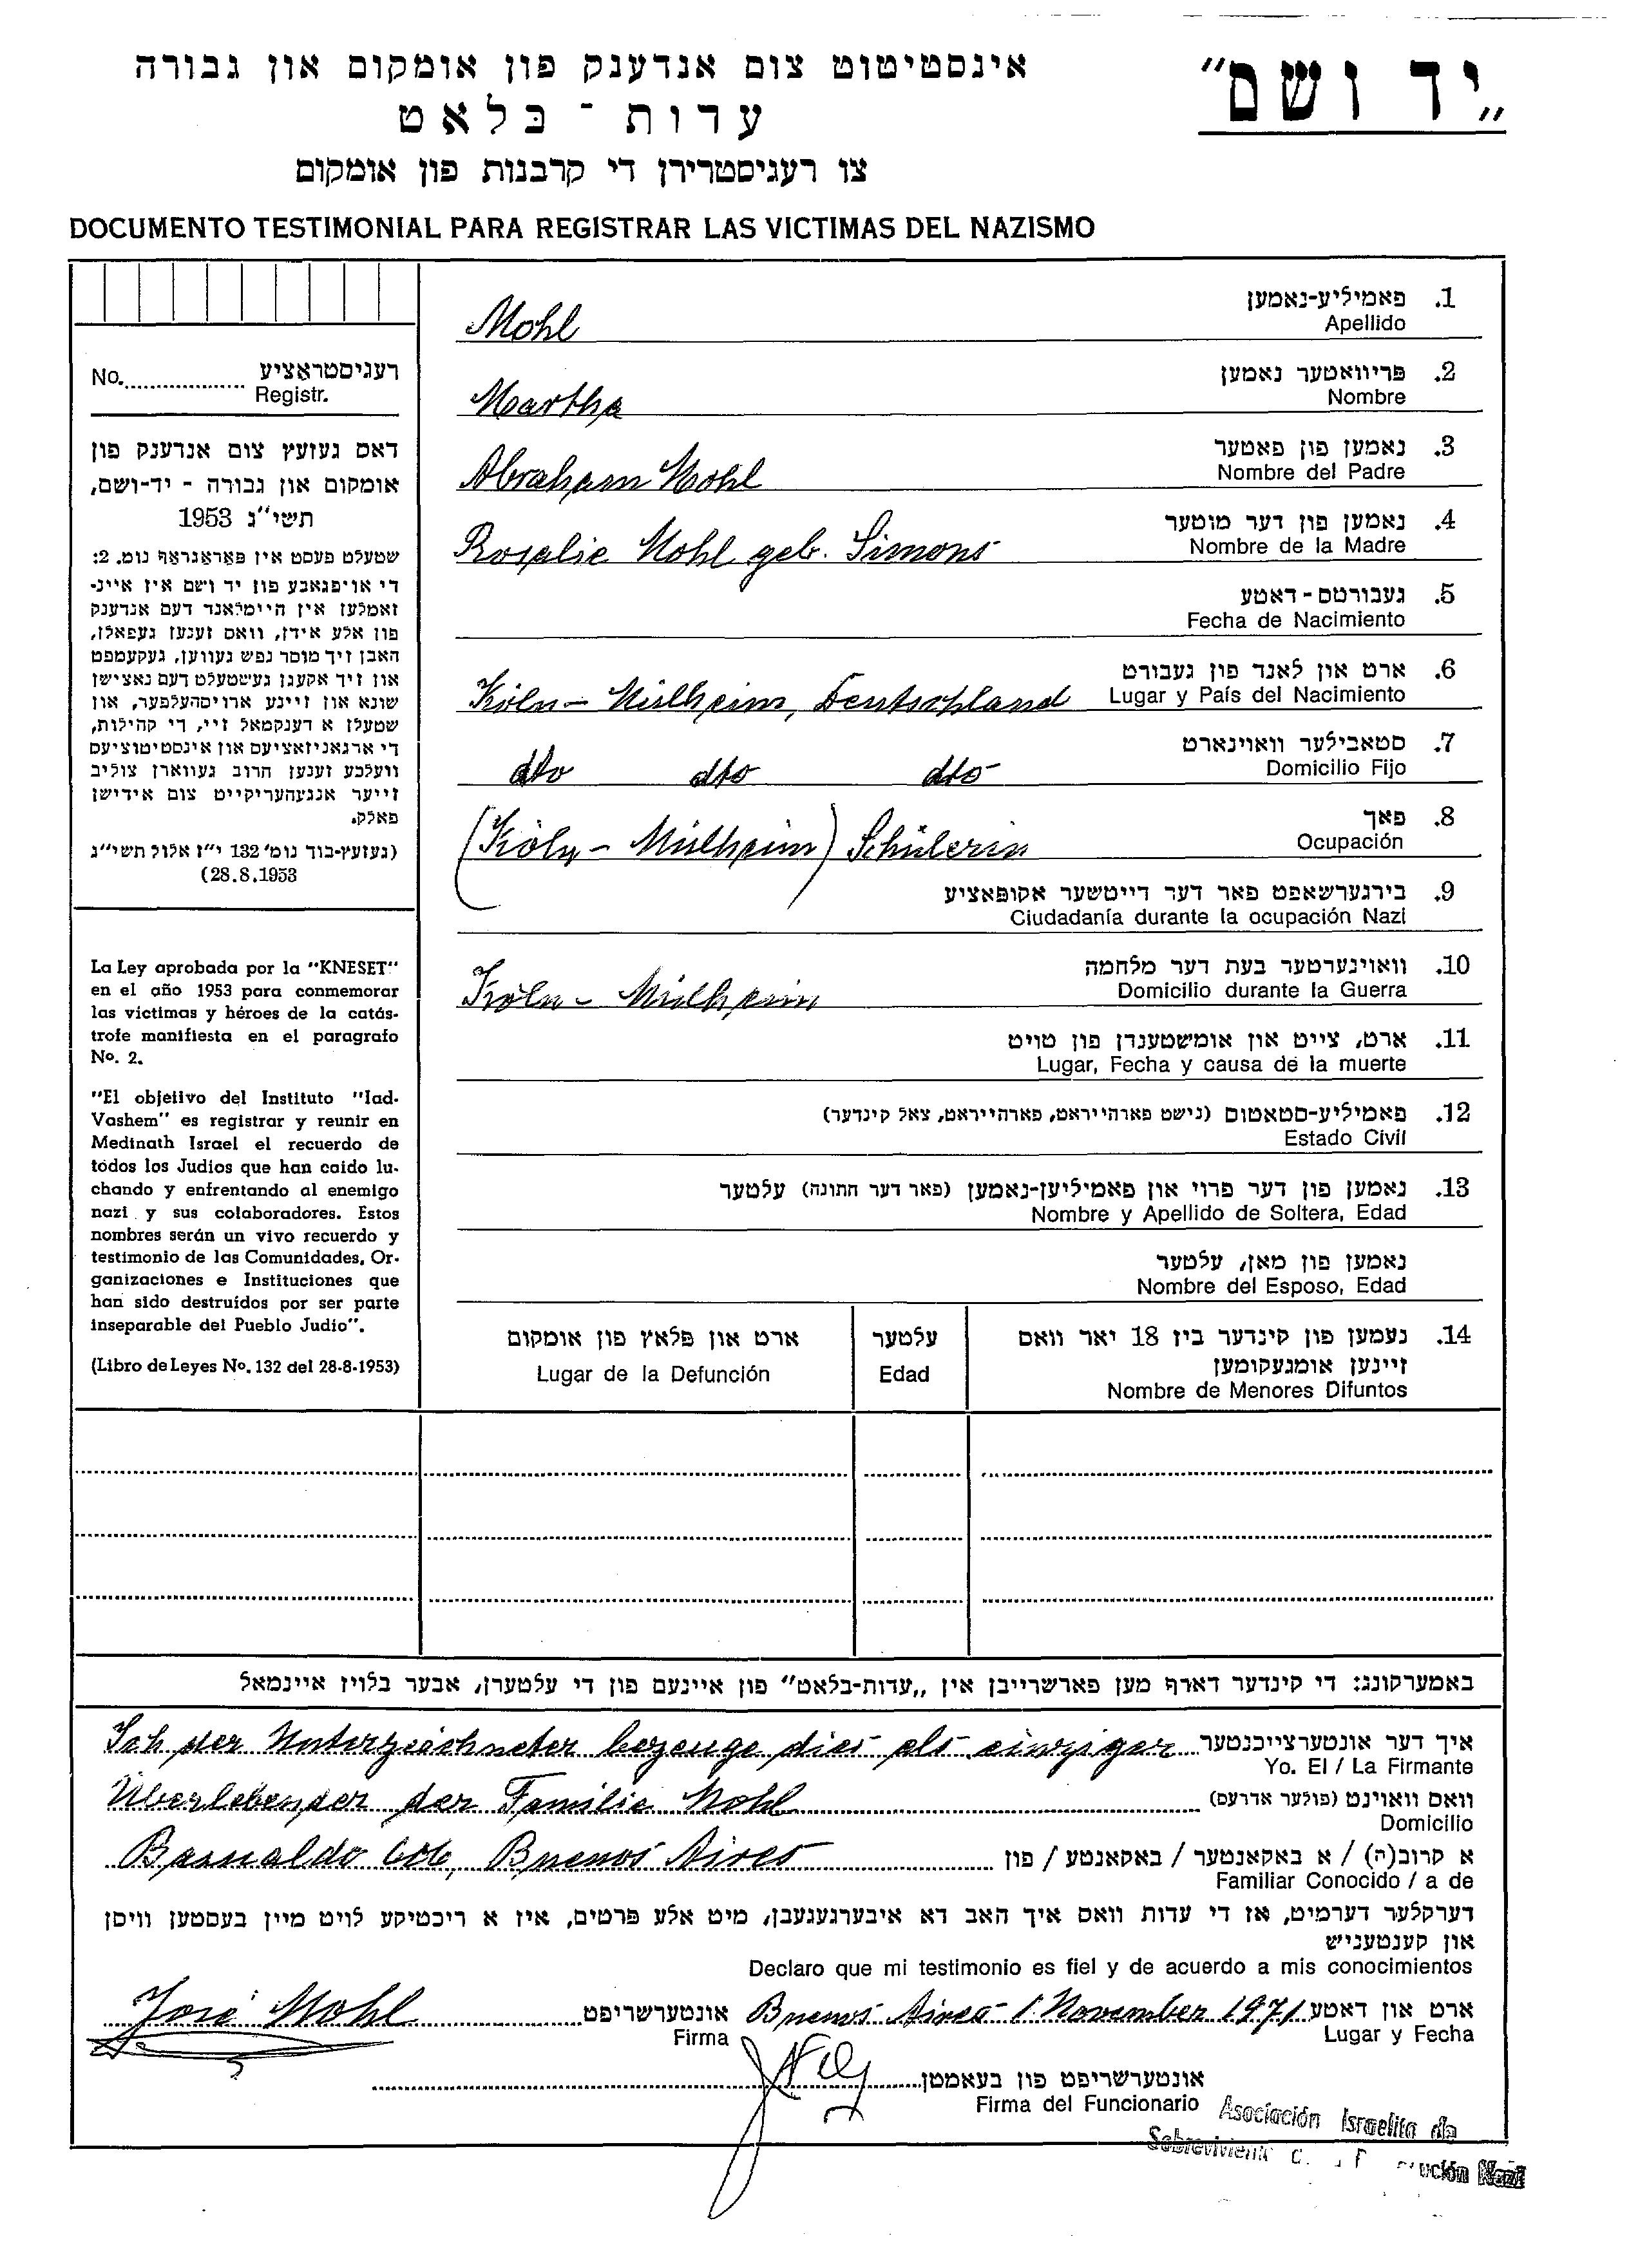 „יד ושם"
אינסטיטוט צום אנדענק פון אומקום און גבורה
עדות - בלאט
צו רעגיסטרירן די קרבנות פון אומקום
DOCUMENTO TESTIMONIAL PARA REGISTRAR LAS VICTIMAS DEL NAZISMO
No. רעגיסטראציע
Registr.
דאס געזעץ צום אנדענק פון
אומקום און גבורה - יד-ושם,
תשי"ג 1953
שטעלט פעסט אין פאראגראף נומ. 2:
די אויפגאבע פון יד ושם איז איינ-
זאמלען אין היימלאנד דעם אנדענק
פון אלע אידן, וואס זענען געפאלן,
האבן זיך מוסר נפש געווען, געקעמפט
און זיך אקעגן געשטעלט דעם נאצישן
שונא און זיינע ארויסהעלפער, און
שטעלן א דענקמאל זיי, די קהילות,
די ארגאניזאציעס און אינסטיטוציעס
וועלכע זענען חרוב געווארן צוליב
זייער אנגעהעריקייט צום אידישן
פאלק.
(געזעץ-בוך נומ' 132 י"ז אלול תשי"ג
28.8.1953)
La Ley aprobada por la "KNESET"
en el año 1953 para conmemorar
las víctimas y héroes de la catás-
trofe manifiesta en el paragrafo
No. 2.
"El objetivo del Instituto "Iad-
Vashem" es registrar y reunir en
Medinath Israel el recuerdo de
todos los Judios que han caido lu-
chando y enfrentando al enemigo
nazi y sus colaboradores. Estos
nombres serán un vivo recuerdo y
testimonio de las Comunidades, Or-
ganizaciones e Instituciones que
han sido destruidos por ser parte
inseparable del Pueblo Judio".
(Libro de Leyes No. 132 del 28-8-1953)
1. פאמיליע-נאמען
Apellido
Mohl
2. פריוואטער נאמען
Nombre
Martha
3. נאמען פון פאטער
Nombre del Padre
Abraham Mohl
4. נאמען פון דער מוטער
Nombre de la Madre
Rosalie Mohl geb. Simons
5. געבורטס-דאטע
Fecha de Nacimiento
6. ארט און לאנד פון געבורט
Lugar y País del Nacimiento
Köln - Mülheim, Deutschland
7. סטאבילער וואוינארט
Domicilio Fijo
dto dto dto
8. פאך
Ocupación
(Köln - Mülheim) Schülerin
9. בירגערשאפט פאר דער דייטשער אקופאציע
Ciudadanía durante la ocupación Nazi
10. וואוינערטער בעת דער מלחמה
Domicilio durante la Guerra
Köln - Mülheim
11. ארט, צייט און אומשטענדן פון טויט
Lugar, Fecha y causa de la muerte
12. פאמיליע-סטאטוס (נישט פארהייראט, פארהייראט, צאל קינדער)
Estado Civil
13. נאמען פון דער פרוי און פאמיליען-נאמען (פאר דער חתונה) עלטער
Nombre y Apellido de Soltera, Edad
נאמען פון מאן, עלטער
Nombre del Esposo, Edad
14. נעמען פון קינדער ביז 18 יאר וואס
זיינען אומגעקומען
Nombre de Menores Difuntos
עלטער
Edad
ארט און פלאץ פון אומקום
Lugar de la Defunción
באמערקונג: די קינדער דארף מען פארשרייבן אין „עדות-בלאט" פון איינעם פון די עלטערן, אבער בלויז איינמאל
איך דער אונטערצייכנטער
Yo. El / La Firmante
Ich der Unterzeichneter bezeuge dies als einziger
וואס וואוינט (פולער אדרעס)
Domicilio
Überlebender der Familie Mohl
א קרוב(ה) / א באקאנטער / באקאנטע / פון
Familiar Conocido / a de
Basualdo 606, Buenos Aires
דערקלער דערמיט, אז די עדות וואס איך האב דא איבערגעגעבן, מיט אלע פרטים, איז א ריכטיקע לויט מיין בעסטען וויסן
און קענטעניש
Declaro que mi testimonio es fiel y de acuerdo a mis conocimientos
ארט און דאטע Buenos Aires 1. November 1971
Lugar y Fecha
אונטערשריפט José Mohl
Firma
אונטערשריפט פון בעאמטן
Firma del Funcionario
Asociación Israelita de
Nazi